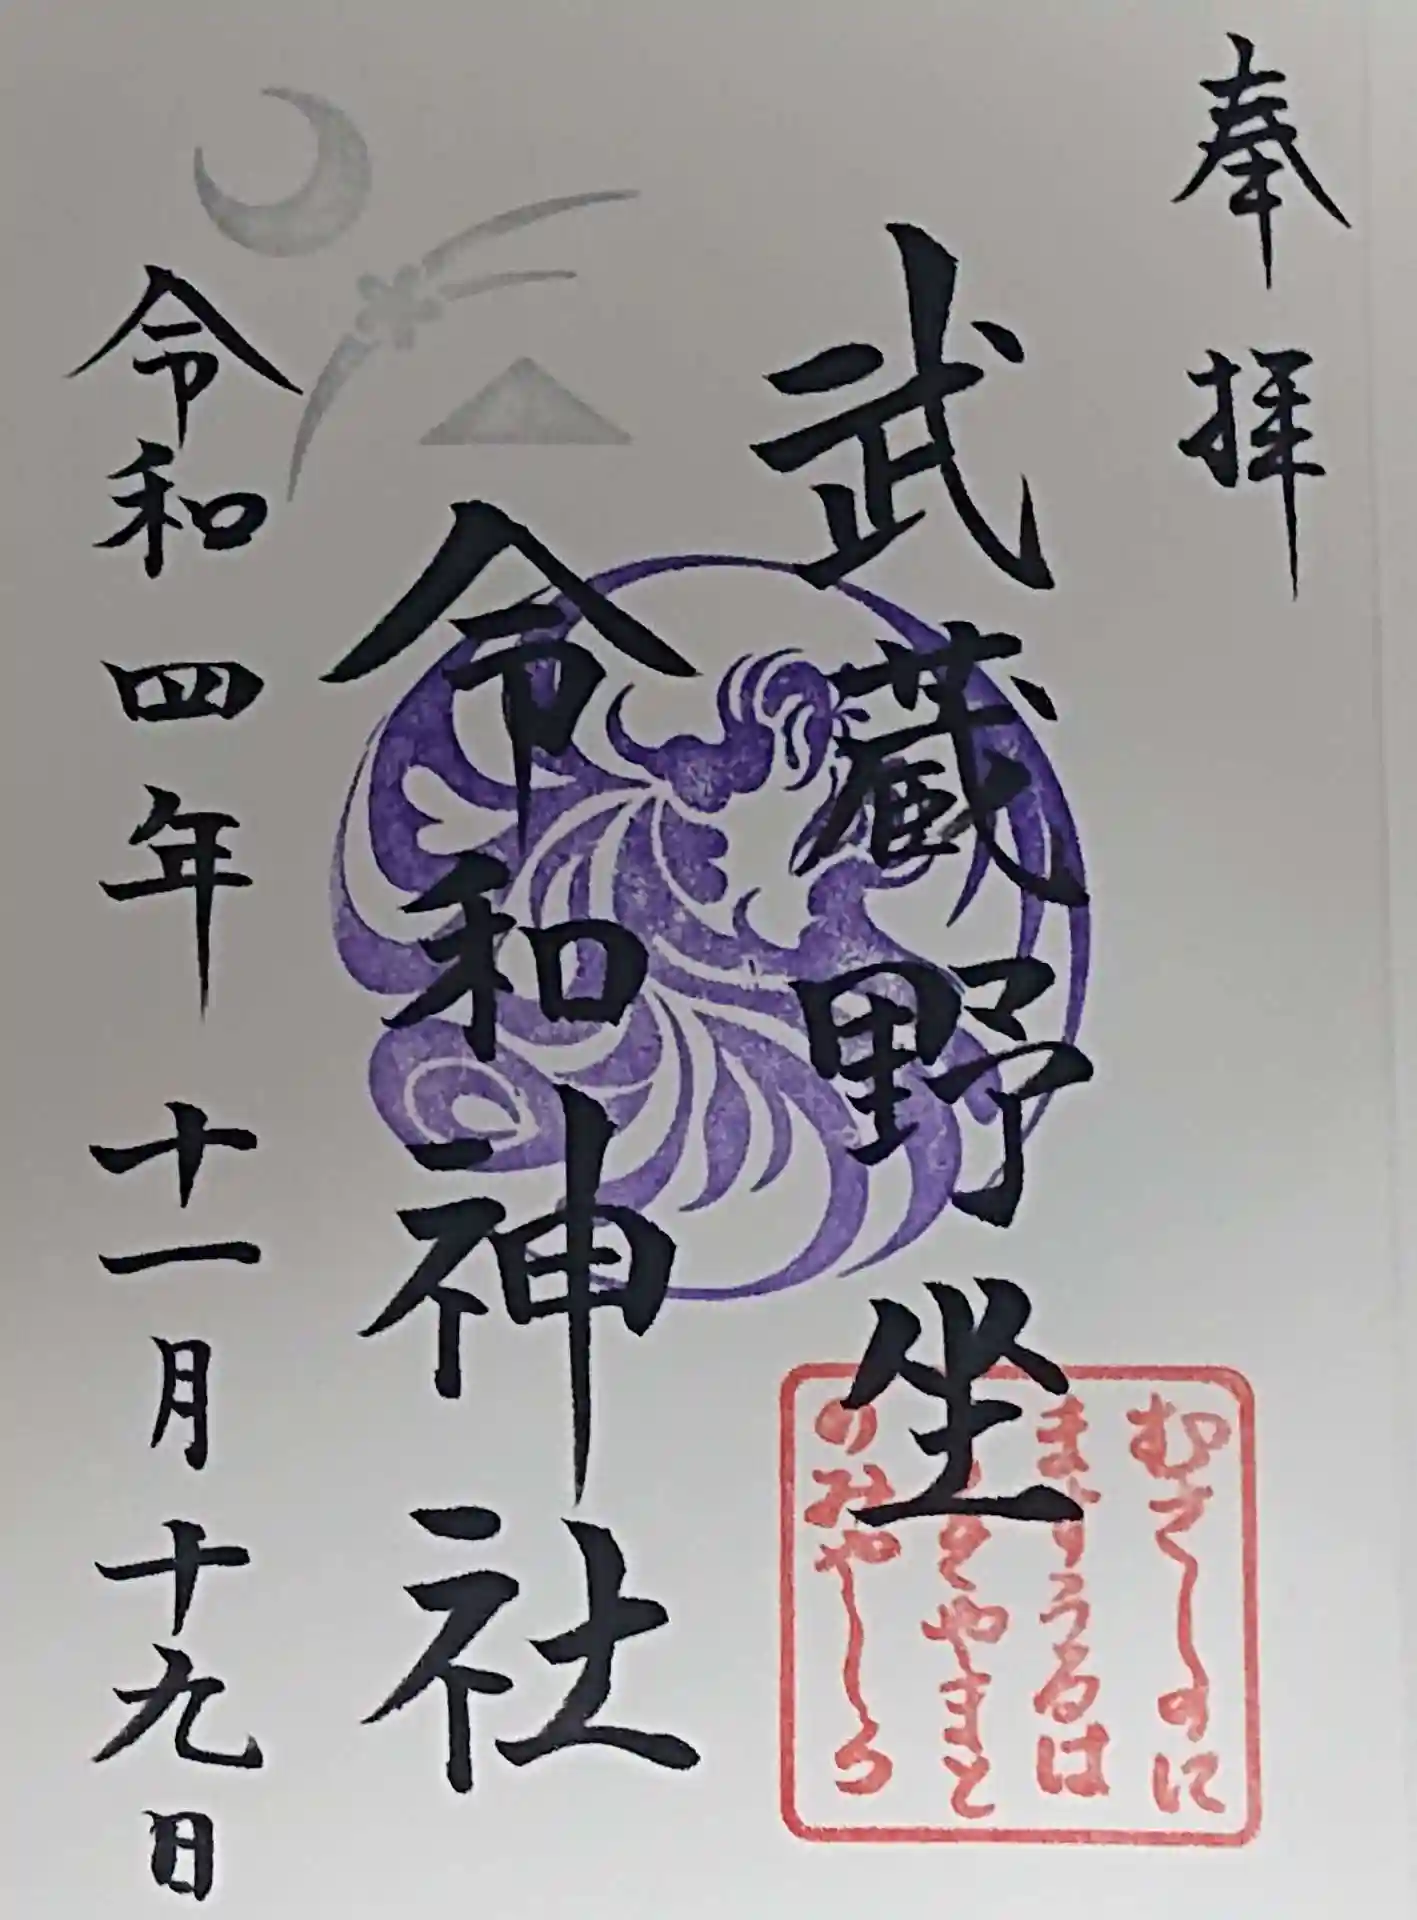 奉拝
武蔵野坐
令和神社
令和四年十一月十九日
むさしのに
ますうるは
やまと
のみやしろ